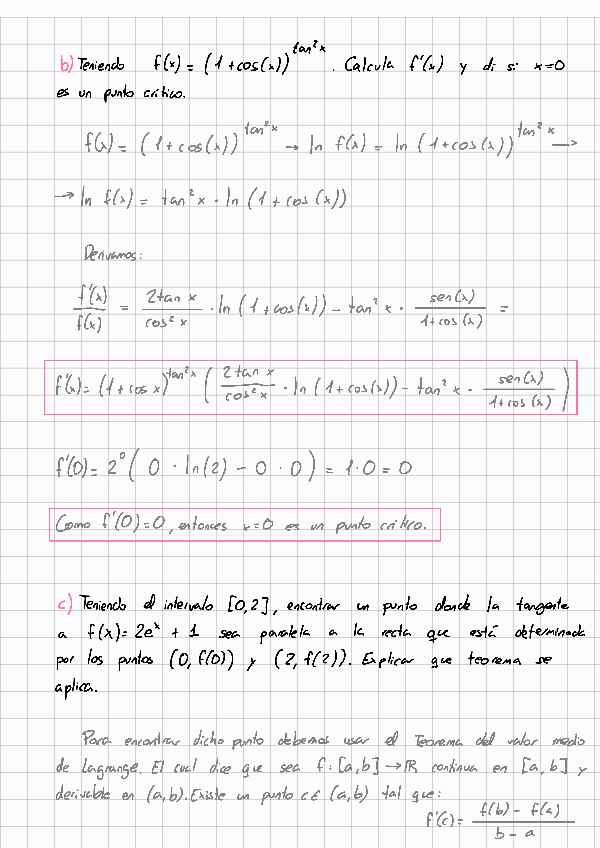 b) Teniendo f(x) = (1 + cos(x))^tan²x . Calcula f'(x) y di si x=0
es un punto crítico.
f(x) = (1 + cos(x))^tan²x → ln f(x) = ln (1 + cos(x))^tan²x →
→ ln f(x) = tan²x · ln (1 + cos(x))
Derivamos:
f'(x)/f(x) = 2tan x/cos²x · ln (1 + cos(x)) - tan²x · sen(x)/1+cos(x) =
f'(x) = (1 + cos x)^tan²x ( 2tan x/cos²x · ln (1 + cos(x)) - tan²x · sen(x)/1+cos(x) )
f'(0) = 2^0 ( 0 · ln(2) - 0 · 0 ) = 1·0 = 0
Como f'(0)=0, entonces x=0 es un punto crítico.
c) Teniendo el intervalo [0,2], encontrar un punto donde la tangente
a f(x) = 2e^x + 1 sea paralela a la recta que está determinada
por los puntos (0, f(0)) y (2, f(2)). Explicar que teorema se
aplica.
Para encontrar dicho punto debemos usar el Teorema del valor medio
de Lagrange. El cual dice que sea f: [a,b] → ℝ continua en [a,b] y
derivable en (a,b). Existe un punto c∈(a,b) tal que:
f'(c) = f(b) - f(a)/b - a